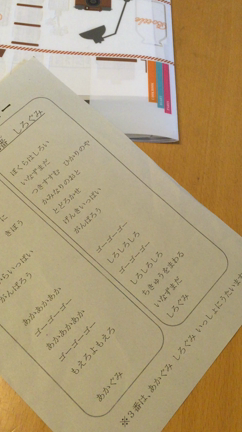 番 しろぐみ
ぼくらはしろい
いなずまだ
つきすすむ ひかりのや
かみなりのおと
とどろかせ
げんきいっぱい
がんばろう
ゴーゴーゴー
しろしろしろ
ゴーゴーゴー
しろしろしろ
ちきゅうをまわる
いなずまだ
しろぐみ
に
きぼう
いっぱい
がんばろう
あかあかあか
ゴーゴーゴー
あかあかあか
ゴーゴーゴー
もえろよもえろ
あかぐみ
※３番は、あかぐみ しろぐみ いっしょにうたいま